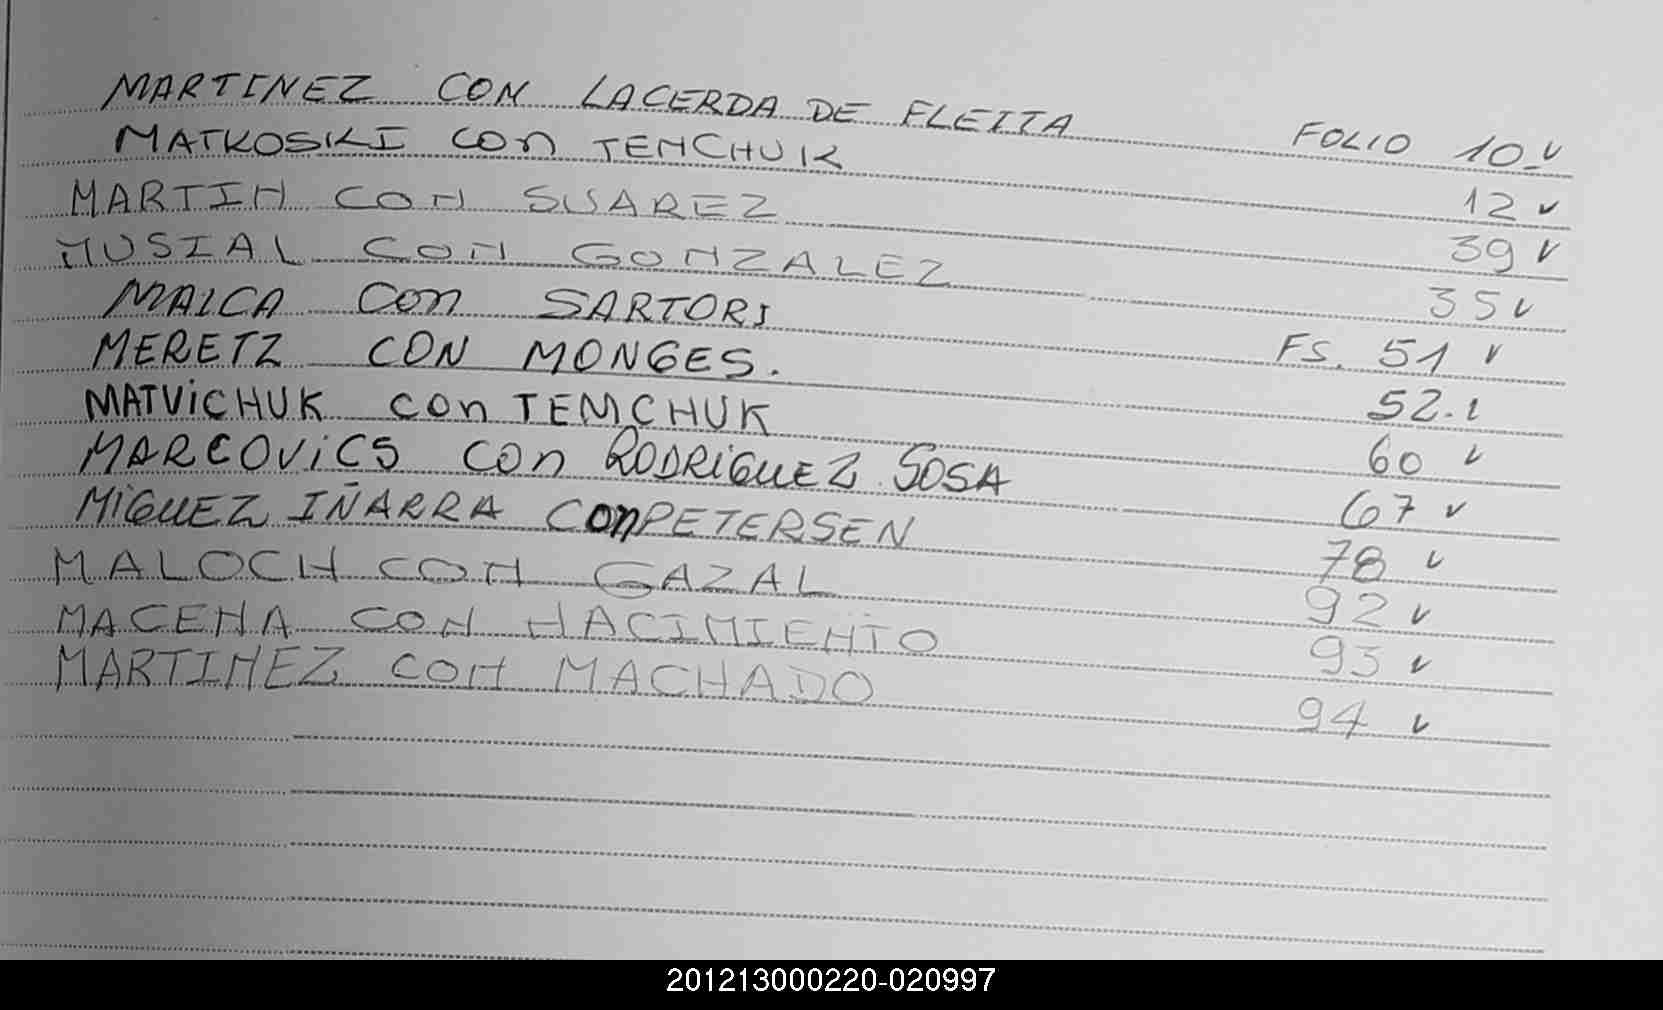 MARTINEZ CON LACERDA DE FLEITA FOLIO 10 ✓
MATKOSKI CON TEMCHUK 12 ✓
MARTIN CON SUAREZ 39 ✓
MUSIAL CON GONZALEZ 35 ✓
MALCA CON SARTORI FS. 51 ✓
MERETZ CON MONGES. 52. ✓
MATViCHUK con TEMCHUK 60 ✓
MARCOViCS con RODRiGUEZ SOSA 67 ✓
MiGUEZ IÑARRA CON PETERSEN 78 ✓
MALOCH CON GAZAL 92 ✓
MACENA CON NACIMIENTO 93 ✓
MARTINEZ CON MACHADO 94 ✓
201213000220-020997